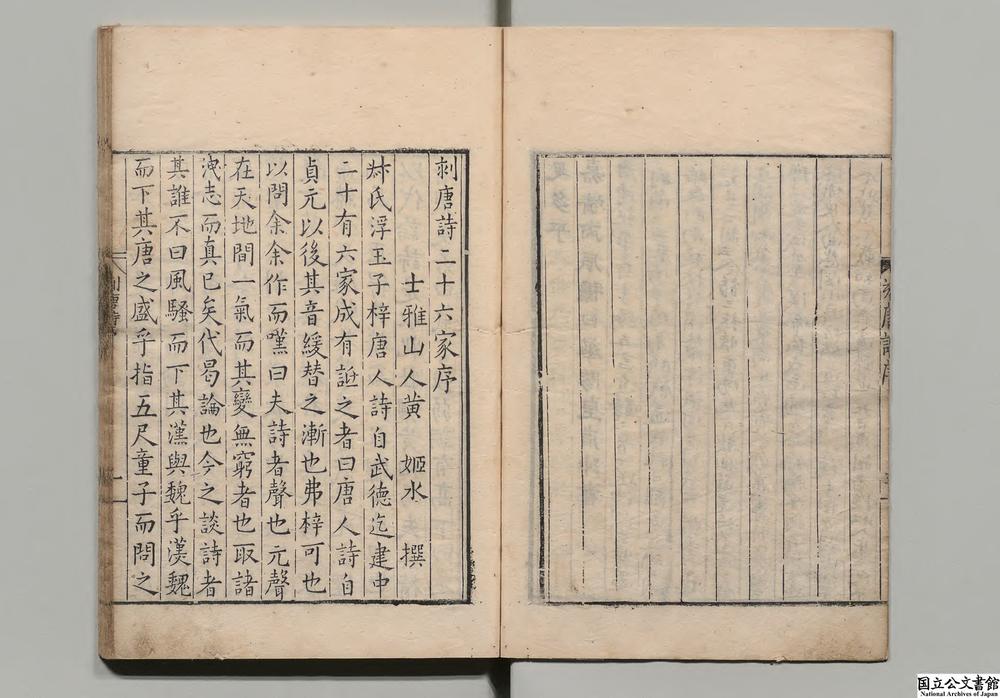 刻唐詩二十六家序
士雅山人黃　姬水　撰
㚴氏浮玉子梓唐人詩自武德迄建中
二十有六家成有詆之者曰唐人詩自
貞元以後其音緩替之漸也弗梓可也
以問余余作而嘆曰夫詩者聲也元聲
在天地間一氣而其變無窮者也取諸
洩志而真已矣代曷論也今之談詩者
其誰不曰風騷而下其漢與魏乎漢魏
而下其唐之盛乎指五尺童子而問之
一
国立公文書館
National Archives of Japan